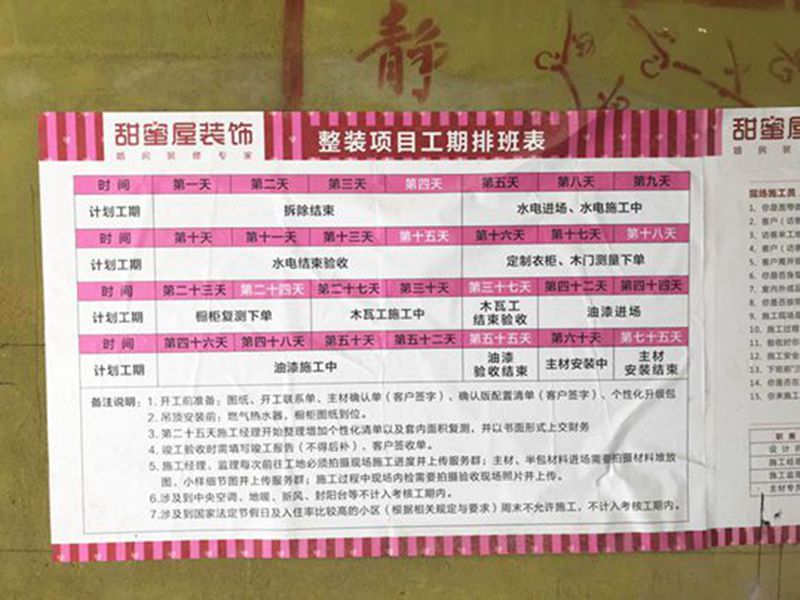 静
甜蜜屋装饰
婚房装修专家
整装项目工期排班表
时间 第一天 第二天 第三天 第四天 第五天 第八天 第九天
计划工期 拆除结束 水电进场、水电施工中
时间 第十天 第十一天 第十三天 第十五天 第十六天 第十七天 第十八天
计划工期 水电结束验收 定制衣柜、木门测量下单
时间 第二十三天 第二十四天 第二十七天 第三十天 第三十七天 第四十二天 第四十四天
计划工期 橱柜复测下单 木瓦工施工中 木瓦工 油漆进场
结束验收
时间 第四十六天 第四十八天 第五十天 第五十二天 第五十五天 第六十天 第七十五天
计划工期 油漆施工中 油漆 主材安装中 主材
验收结束 安装结束
备注说明：1. 开工前准备：图纸、开工联系单、主材确认单（客户签字）、确认版配置清单（客户签字）、个性化升级包
2. 吊顶安装前：燃气热水器，橱柜图纸到位。
3. 第二十五天施工经理开始整理增加个性化清单以及套内面积复测，并以书面形式上交财务
4. 竣工验收时需填写竣工报告（不得后补）、客户签收单。
5. 施工经理、监理每次前往工地必须拍摄现场施工进度并上传服务群；主材、半包材料进场需要拍摄材料堆放
图，小样细节图并上传服务群；施工过程中现场内检需要拍摄验收现场照片并上传。
6. 涉及到中央空调、地暖、新风、封阳台等不计入考核工期内。
7. 涉及到国家法定节假日及入住率比较高的小区（根据相关规定与要求）周末不允许施工，不计入考核工期内。
甜蜜屋
婚房装修
现场施工员
1、你是否带
2、客户（访
3、访客来工
4、客户（访
5、客户离开
6、你是否身
7、室内外成品
8、你是否
9、现场施工
10、施工过程
11、验收时你
12、施工安全
13、下班前
14、你是否在
15、你来施工
职务
设计师
施工经理
施工监理
主材专员